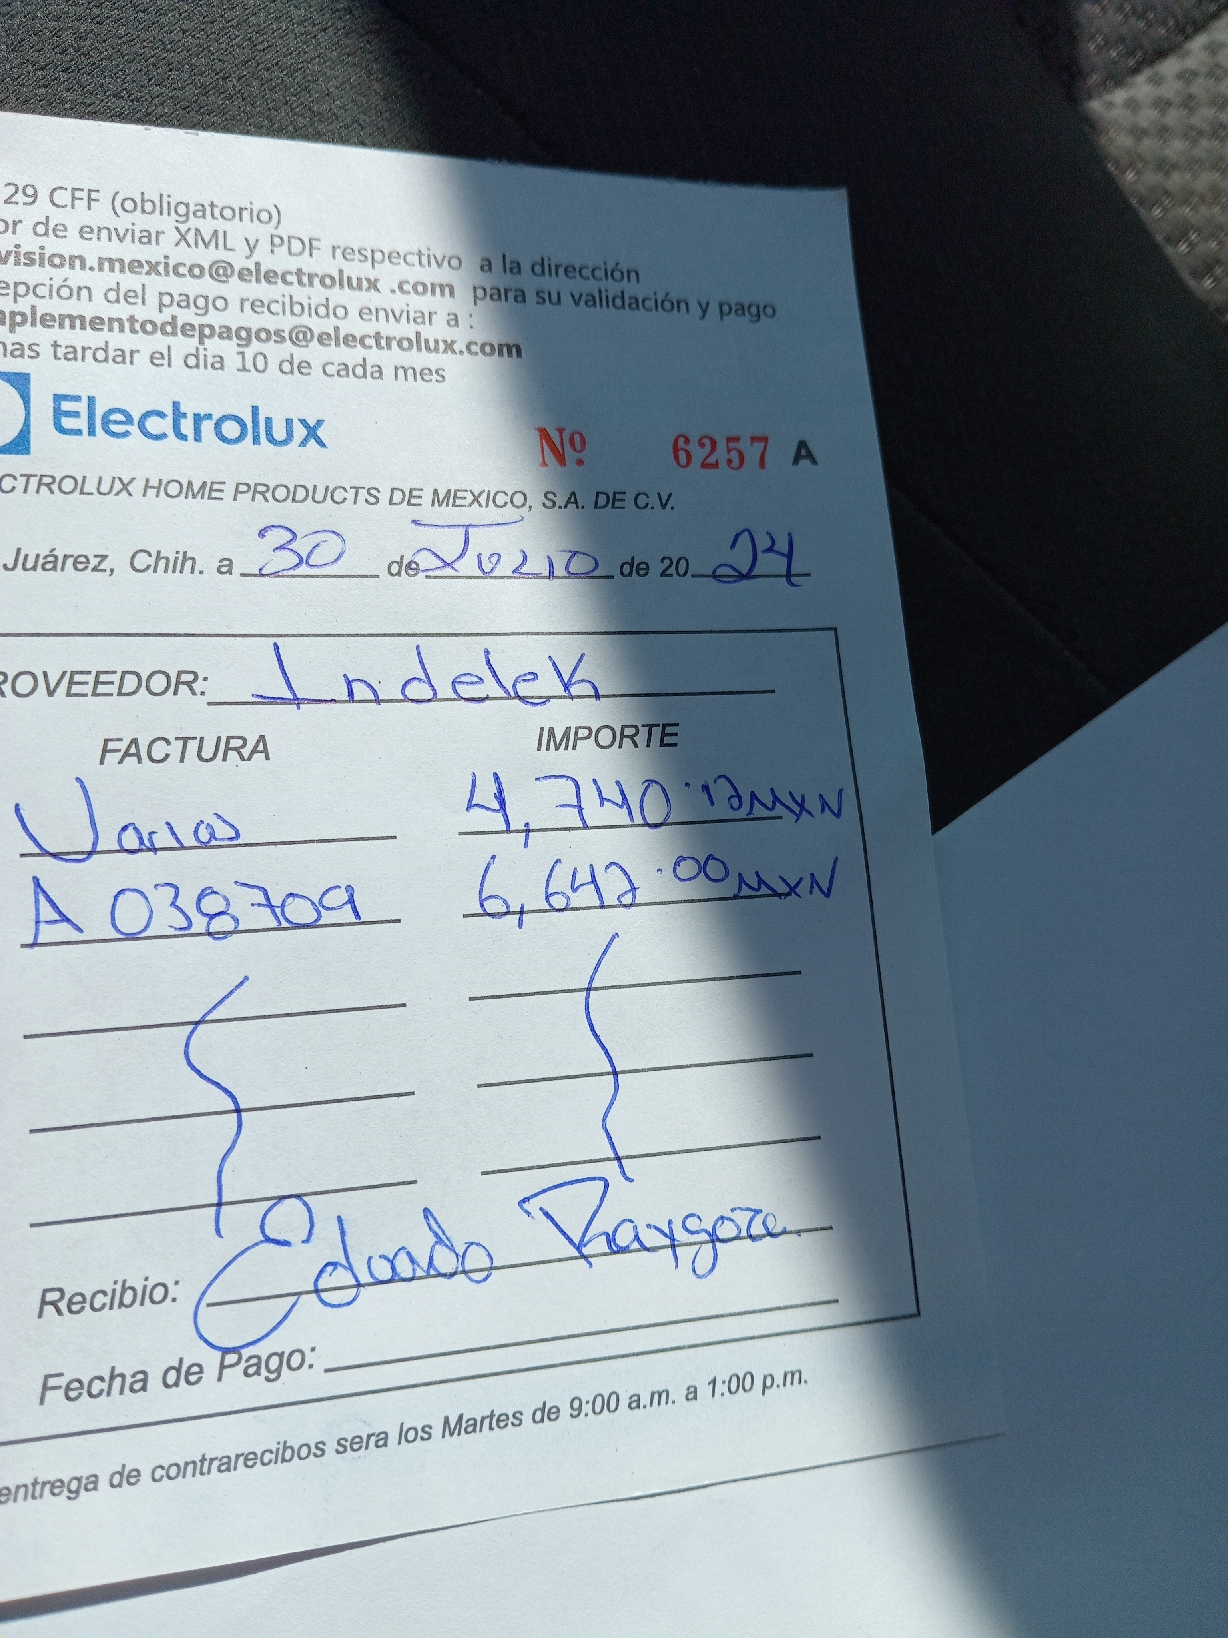 29 CFF (obligatorio)
or de enviar XML y PDF respectivo a la dirección
vision.mexico@electrolux .com para su validación y pago
epción del pago recibido enviar a :
plementodepagos@electrolux.com
mas tardar el dia 10 de cada mes
Electrolux
Nº 6257 A
CTROLUX HOME PRODUCTS DE MEXICO, S.A. DE C.V.
Juárez, Chih. a 30 de Julio de 20 24
ROVEEDOR: Indelek
FACTURA IMPORTE
Varias 4,740.12 MXN
A 038709 6,642.00 MXN
Recibio: Eduado Raygoza
Fecha de Pago:
entrega de contrarecibos sera los Martes de 9:00 a.m. a 1:00 p.m.